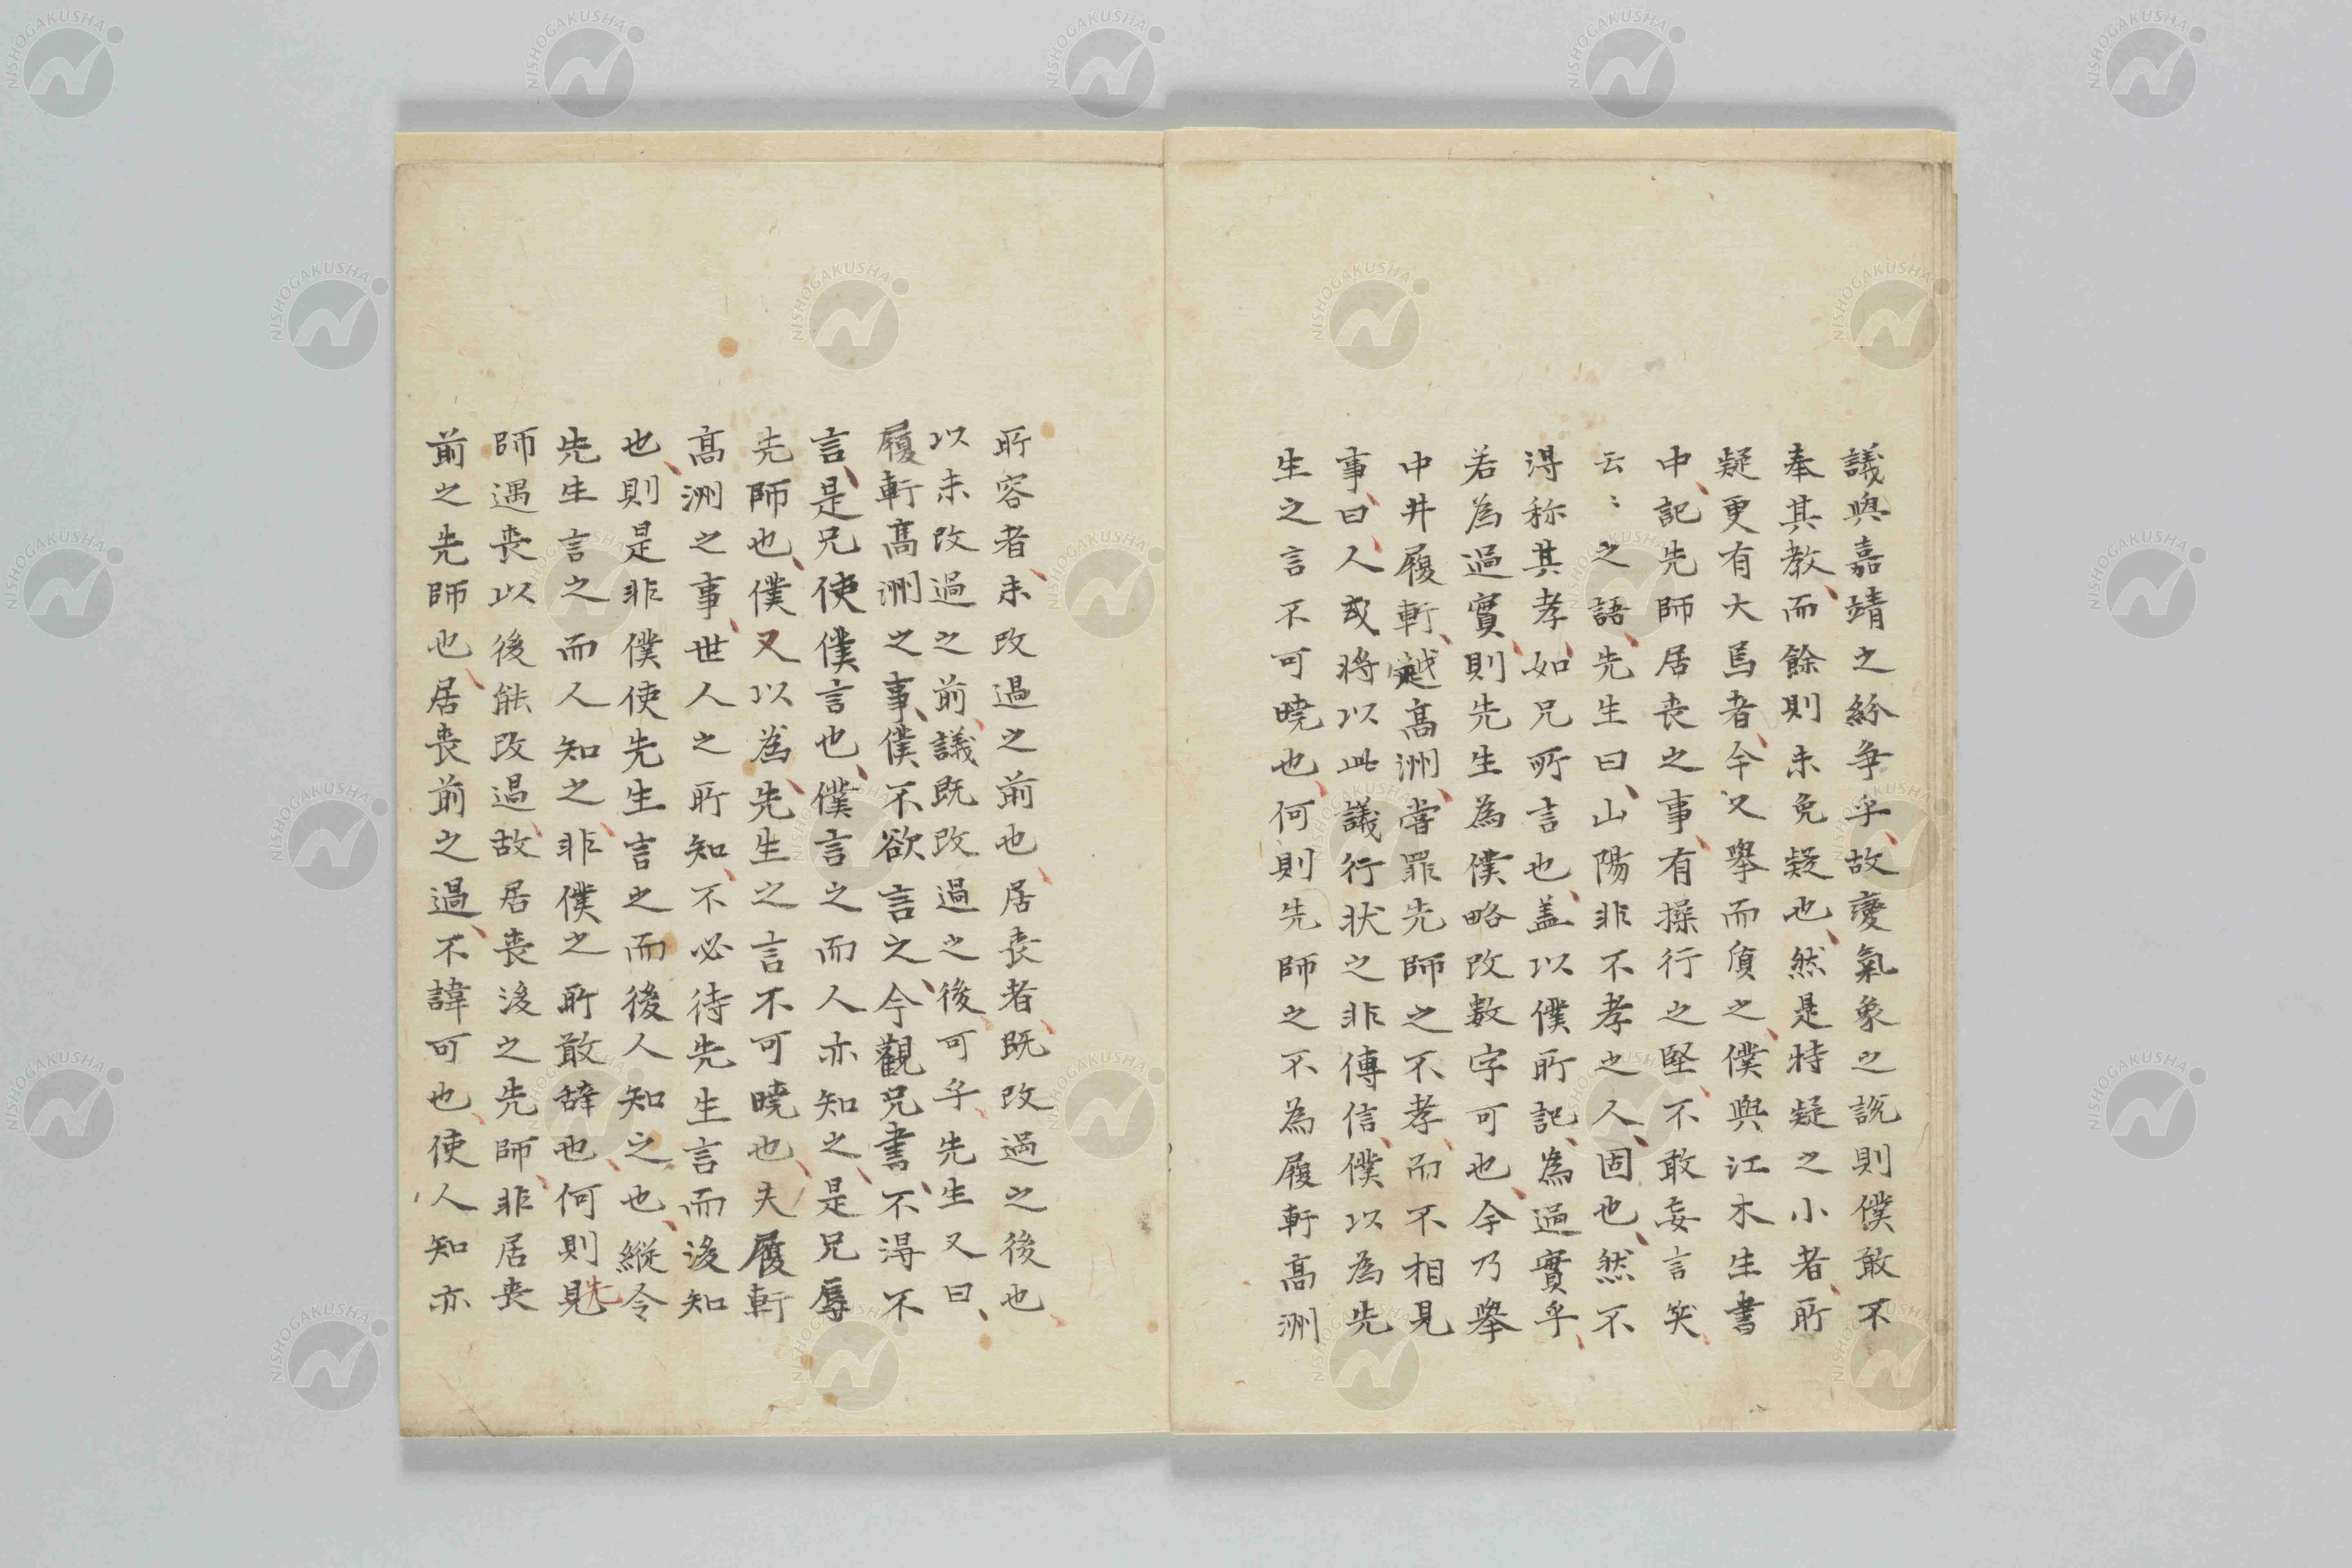 議與嘉靖之紛争乎故変氣象之說則僕敢不
奉其教而餘則未免疑也然是特疑之小者所
疑更有大焉者今又擧而質之僕與江木生書
中記先師居丧之事有操行之堅不敢妄言矣
云〻之語先生曰山陽非不孝之人固也然不
淂称其孝如兄所言也盖以僕所記為過實乎
若為過實則先生為僕略改数字可也今乃擧
中井履軒越髙洲嘗罪先師之不孝而不相見
事曰人或将以此議行状之非傳信僕以為先
生之言不可曉也何則先師之不為履軒髙洲
所容者未改過之前也居丧者既改過之後也
以未改過之前議既改過之後可乎先生又曰
履軒髙洲之事僕不欲言之今觀兄書不淂不
言是兄使僕言也僕言之而人亦知之是兄辱
先師也僕又以為先生之言不可曉也夫履軒
髙洲之事世人之所知不必待先生言而後知
也則是非僕使先生言之而後人知之也縦令
先生言之而人知之非僕之所敢辞也何則先見
師遇丧以後能改過故居丧後之先師非居丧
前之先師也居丧前之過不諱可也使人知亦